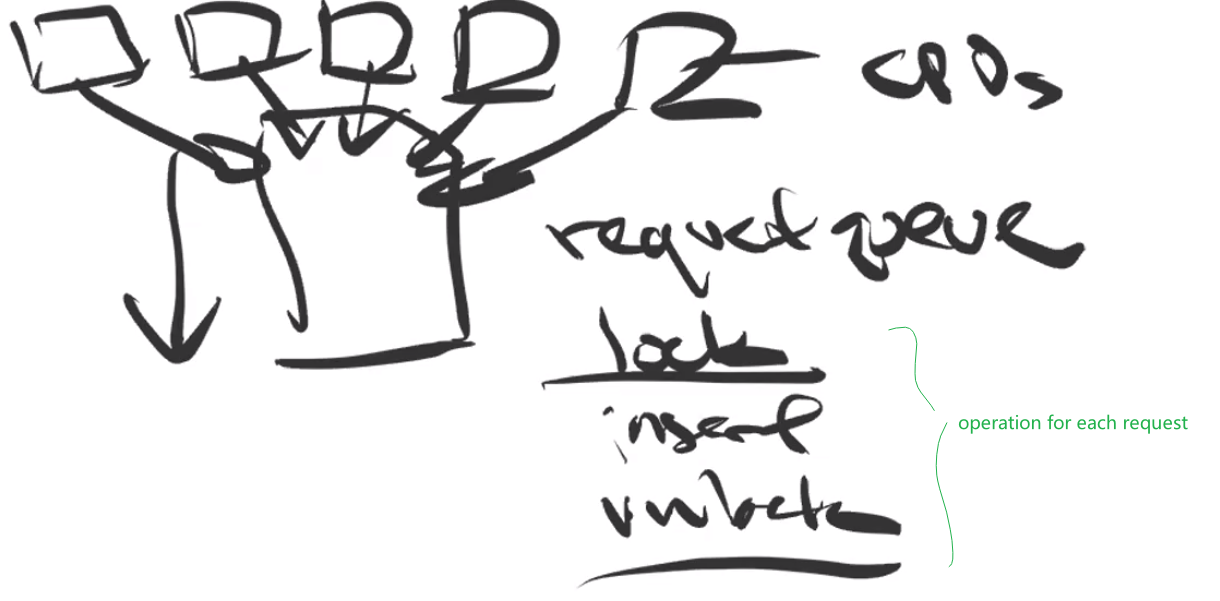 CPUs
request queue
lock
insert
unlock
operation for each request